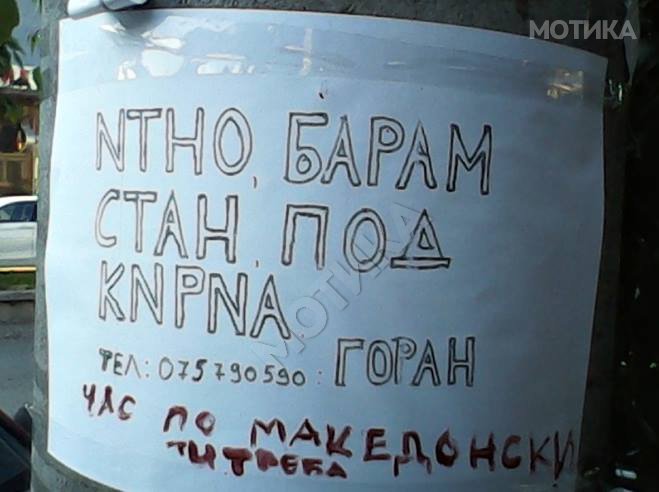 МОТИКА
NТНО, БАРАМ
СТАН, ПОД
КNРNА.
ТЕЛ: 075790590: ГОРАН
ЧАС ПО МАКЕДОНСКИ
ТИ ТРЕБА
МОТИКА